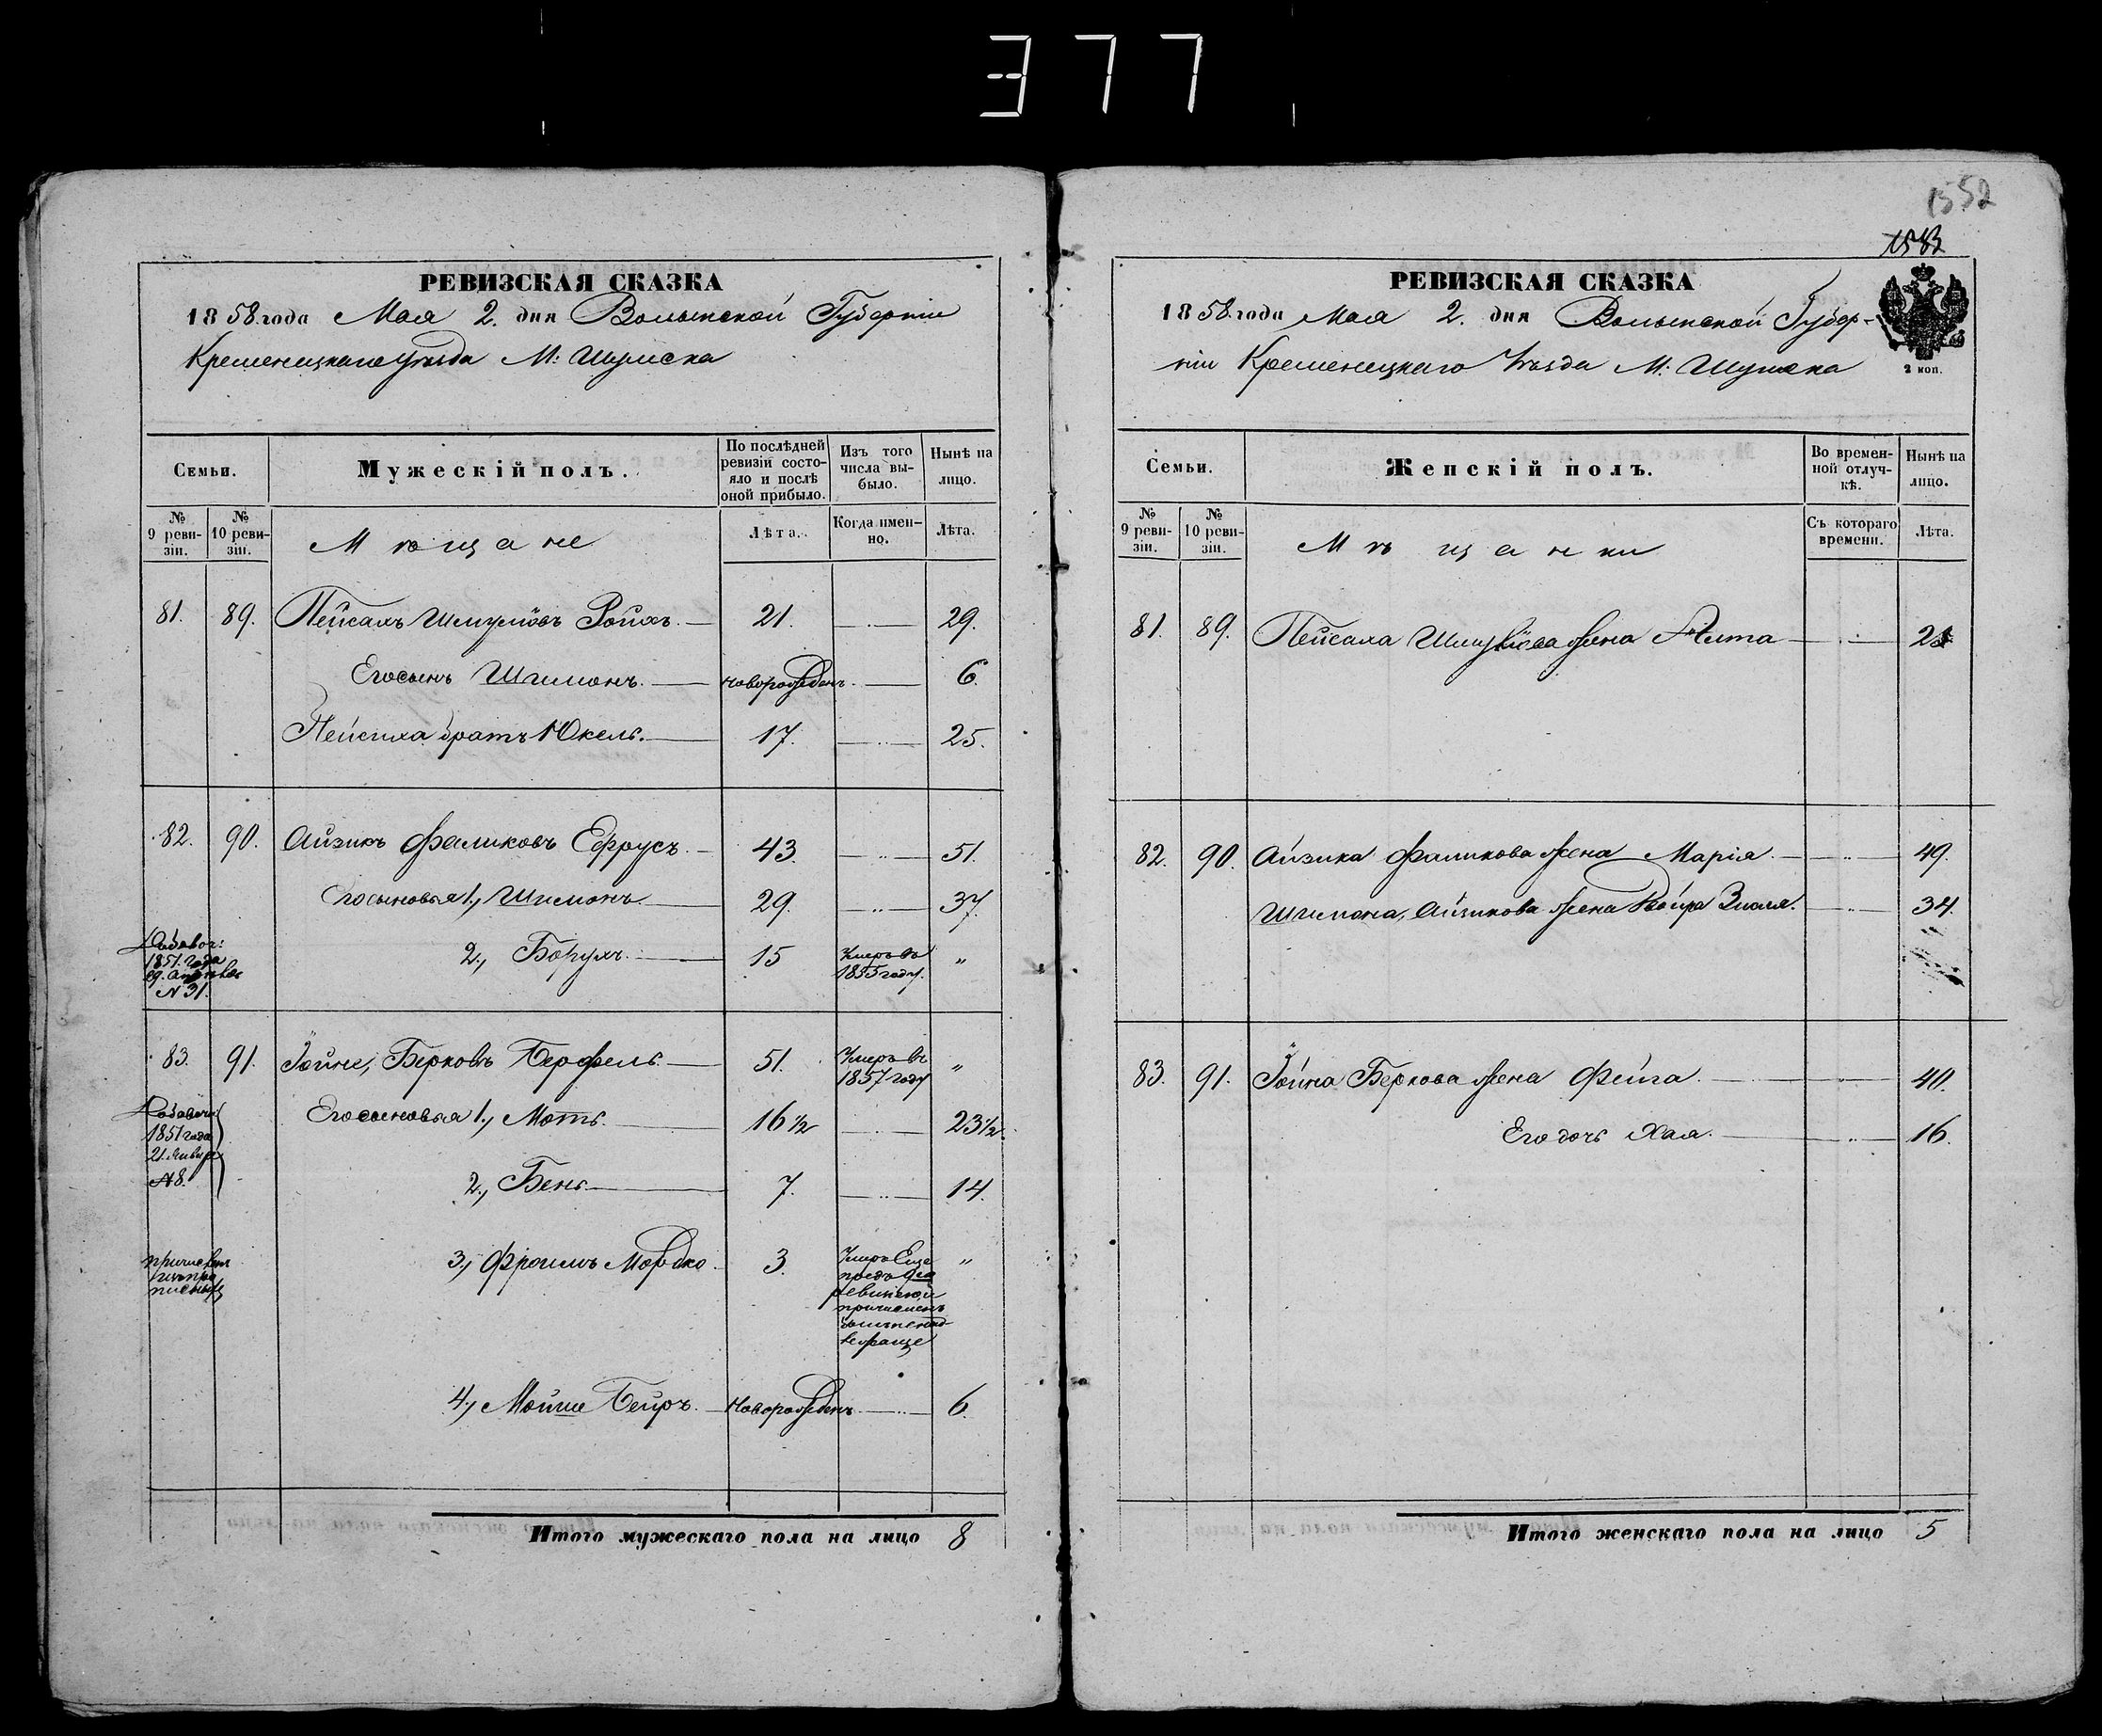 377
1552
1583
РЕВИЗСКАЯ СКАЗКА
1858 года Мая 2. дня Волынской Губерніи
Кременецкаго уѣзда М: Шумска
Семьи.
Мужескій полъ.
По послѣдней ревизіи состояло и послѣ оной прибыло.
Изъ того числа выбыло.
Нынѣ на лицо.
№ 9 ревизіи.
№ 10 ревизіи.
Мѣщане
Лѣта.
Когда именно.
Лѣта.
81. 89. Пейсахъ Шмулiовъ Ройхъ. 21. 29.
Его сынъ Шимонъ. новорожденъ. 6.
Пейсаха братъ Юкель. 17. 25.
82. 90. Айзикъ Фаликовъ Ефрусъ. 43. 51.
Его сыновья 1., Шимонъ. 29. 37.
Добавоч: 1851. года
N 31.
2., Борухъ. 15 Умеръ въ 1855 году. "
83. 91. Іойне, Берковъ Берфель. 51. Умеръ въ 1857 году "
Добавоч: 1851 года 21. Января N 8.
Его сыновья 1., Моть. 16 1/2 23 1/2.
2., Бень. 7. 14.
3., Фроимъ Мордко. 3. Умеръ Еще предъ 9ю ревизіею "
4., Мойше Бейръ. новорожденъ. 6.
Итого мужескаго пола на лицо 8
РЕВИЗСКАЯ СКАЗКА
1858 года Мая 2. дня Волынской Губер-
ніи Кременецкаго Уѣзда М: Шумска
2 коп.
Семьи.
Женскій полъ.
Во временной отлучкѣ.
Нынѣ на лицо.
№ 9 ревизіи.
№ 10 ревизіи.
Мѣщанки
Съ котораго времени.
Лѣта.
81. 89. Пейсаха Шмулiова жена
82. 90. Айзика Фаликова жена Марія. 49.
Шимона, Айзикова жена Двойра Зисля. 34.
83. 91. Іойна Беркова жена Фейга. 40.
Его дочь Хая. 16.
Итого женскаго пола на лицо 5